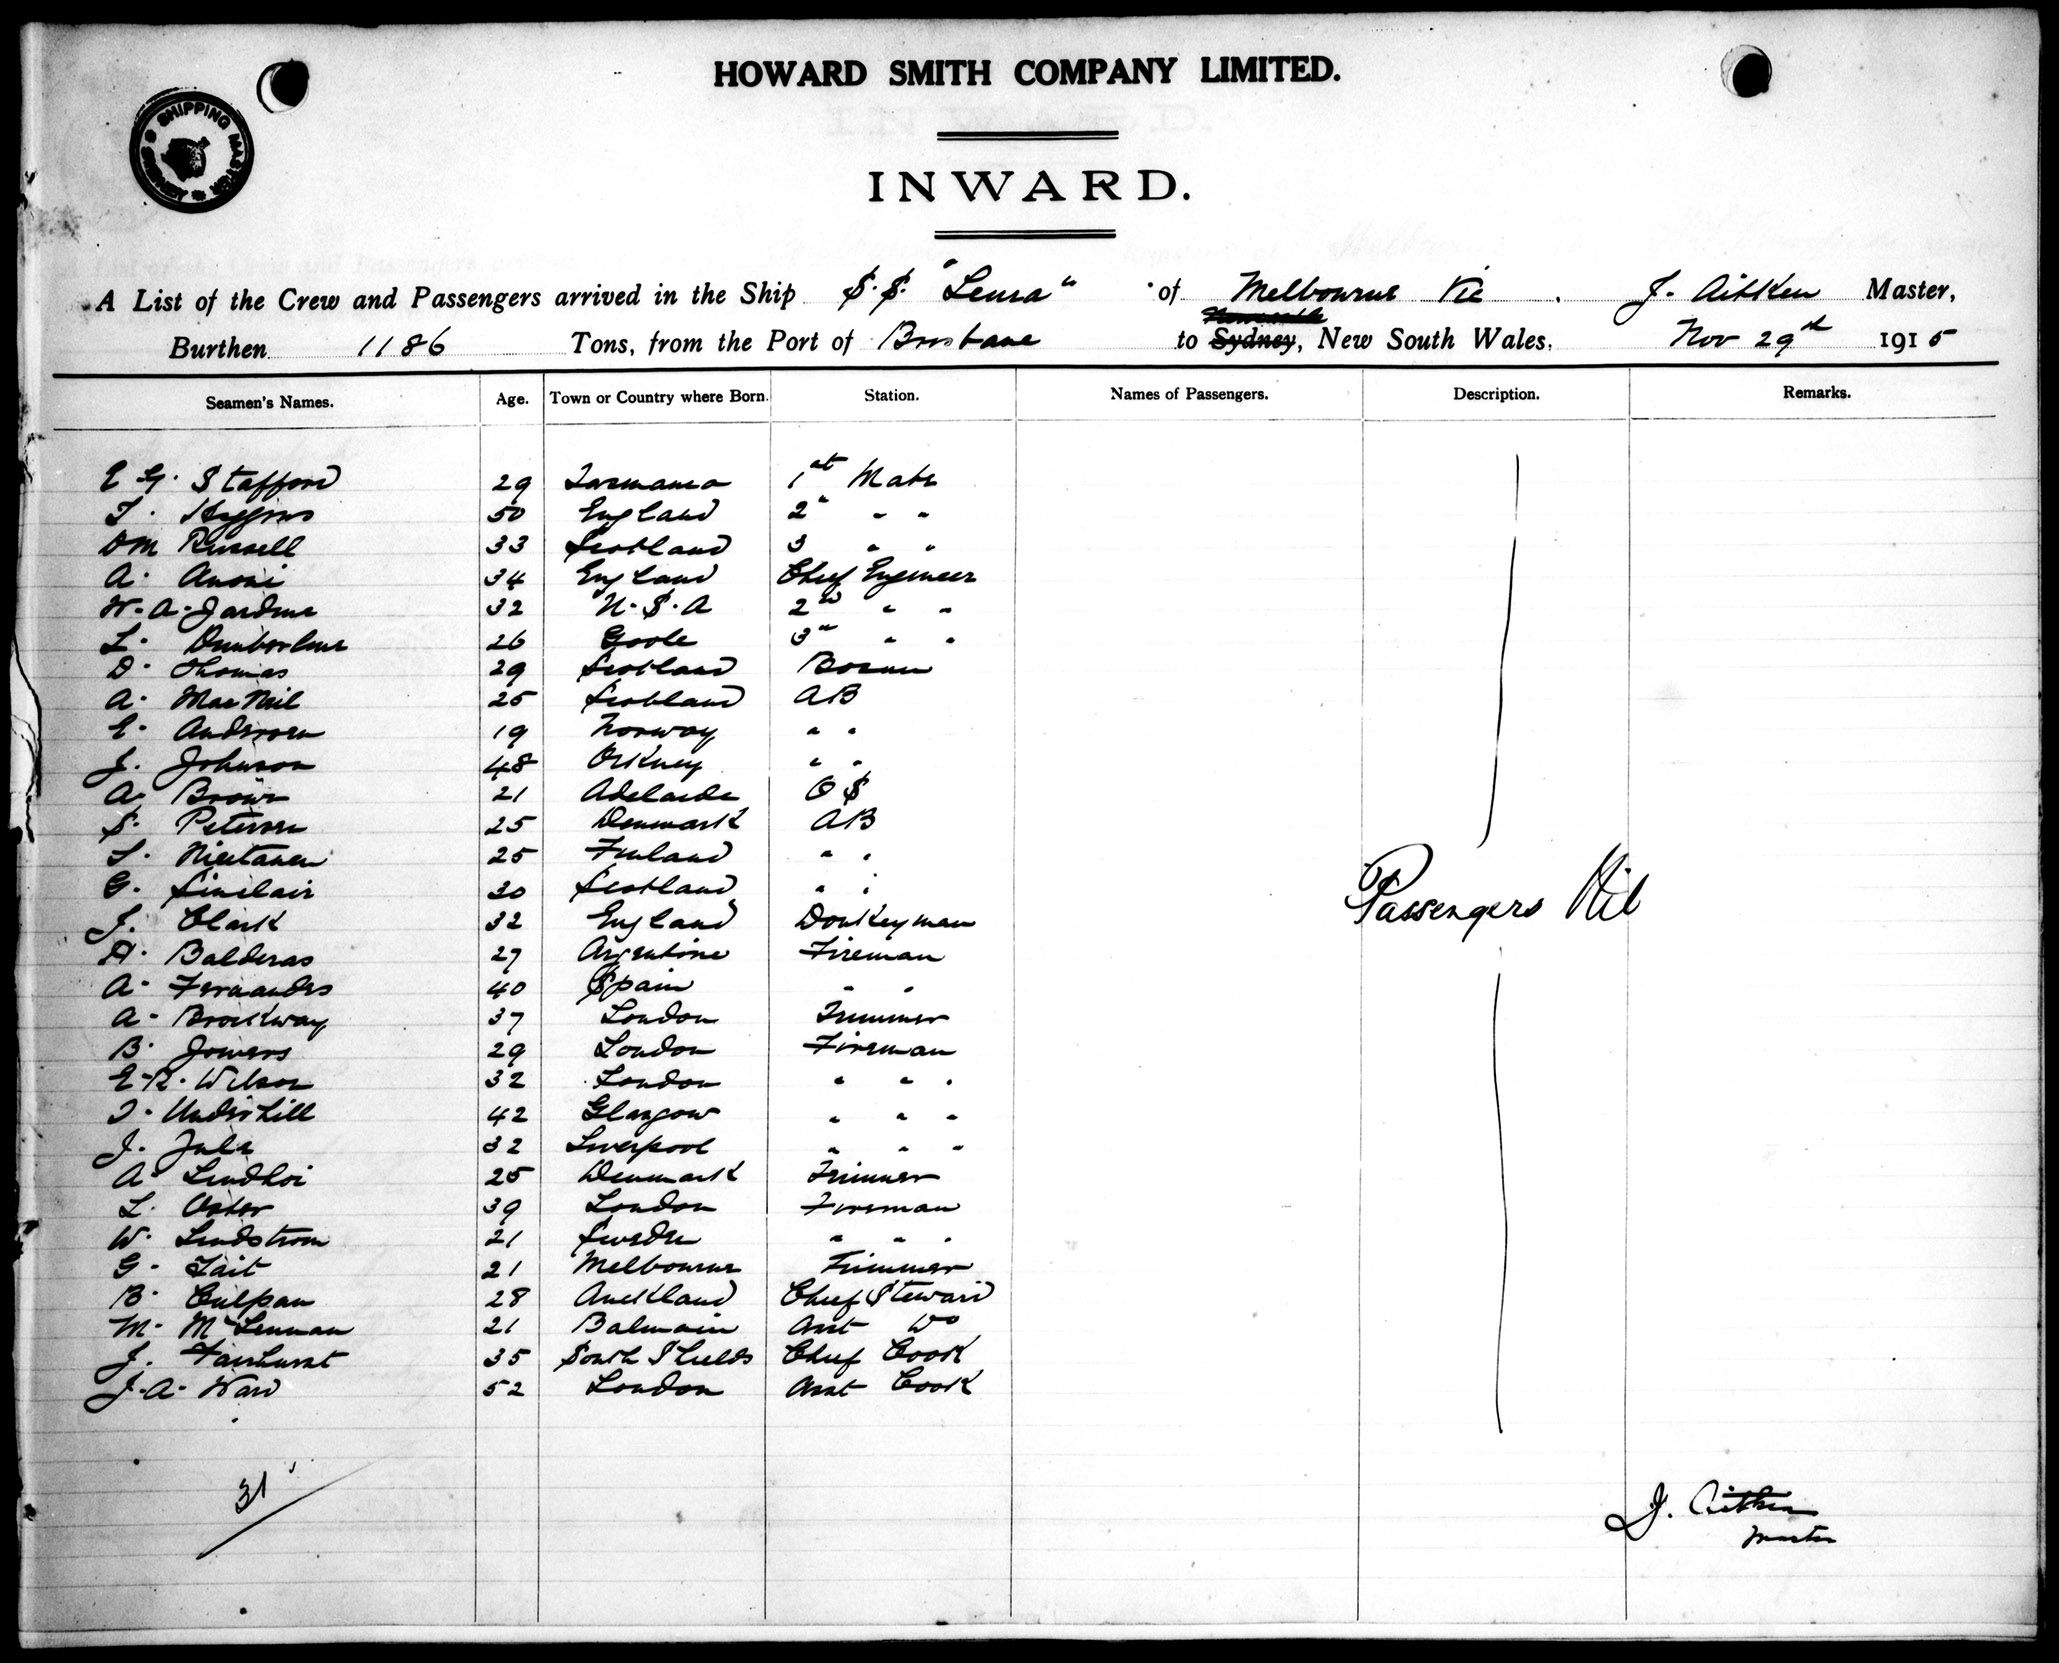 HOWARD SMITH COMPANY LIMITED.
SHIPPING MASTER SYDNEY
INWARD.
A List of the Crew and Passengers arrived in the Ship S.S. "Leura" of Melbourne Vic. J. Aitken Master,
Newcastle
Burthen 1186 Tons, from the Port of Brisbane to Sydney, New South Wales, Nov 29th 1915
Seamen's Names. Age. Town or Country where Born. Station. Names of Passengers. Description. Remarks.
E G. Stafford 29 Tasmania 1st Mate
T. Higgins 50 England 2" " "
DM Russell 33 Scotland 3 " "
A. 34 England Chief Engineer
W. A. Jardine 32 U.S.A 2nd " "
L. 26 Goole 3" " "
D. Thomas 29 Scotland Bosun
A. MacNeil 25 Scotland AB
E. Andersen 19 Norway " "
J. Johnson 48 Orkney " "
A. Brown 21 Adelaide OS
S. Petersen 25 Denmark AB
25 Finland " "
G. Sinclair 30 Scotland " "
J. Clark 32 England Donkeyman
Balderas 27 Argentine Fireman
A. Fernandes 40 Spain " "
A. Brockway 37 London Trimmer
B. Jowers 29 London Fireman
E. R. Wilson 32 London " " "
T. Underhill 42 Glasgow " " "
J. 32 Liverpool " " "
A. 25 Denmark Trimmer
L. 39 London Fireman
W. Lindstrom 21 Sweden " " "
G. Tait 21 Melbourne Trimmer
B. Culpan 28 Auckland Chief Steward
M. McLennan 21 Balmain Asst Do
J. Fairhurst 35 South Shields Chief Cook
J. A. Ward 52 London Asst Cook
Passengers Nil
31
J. Aitken
Master